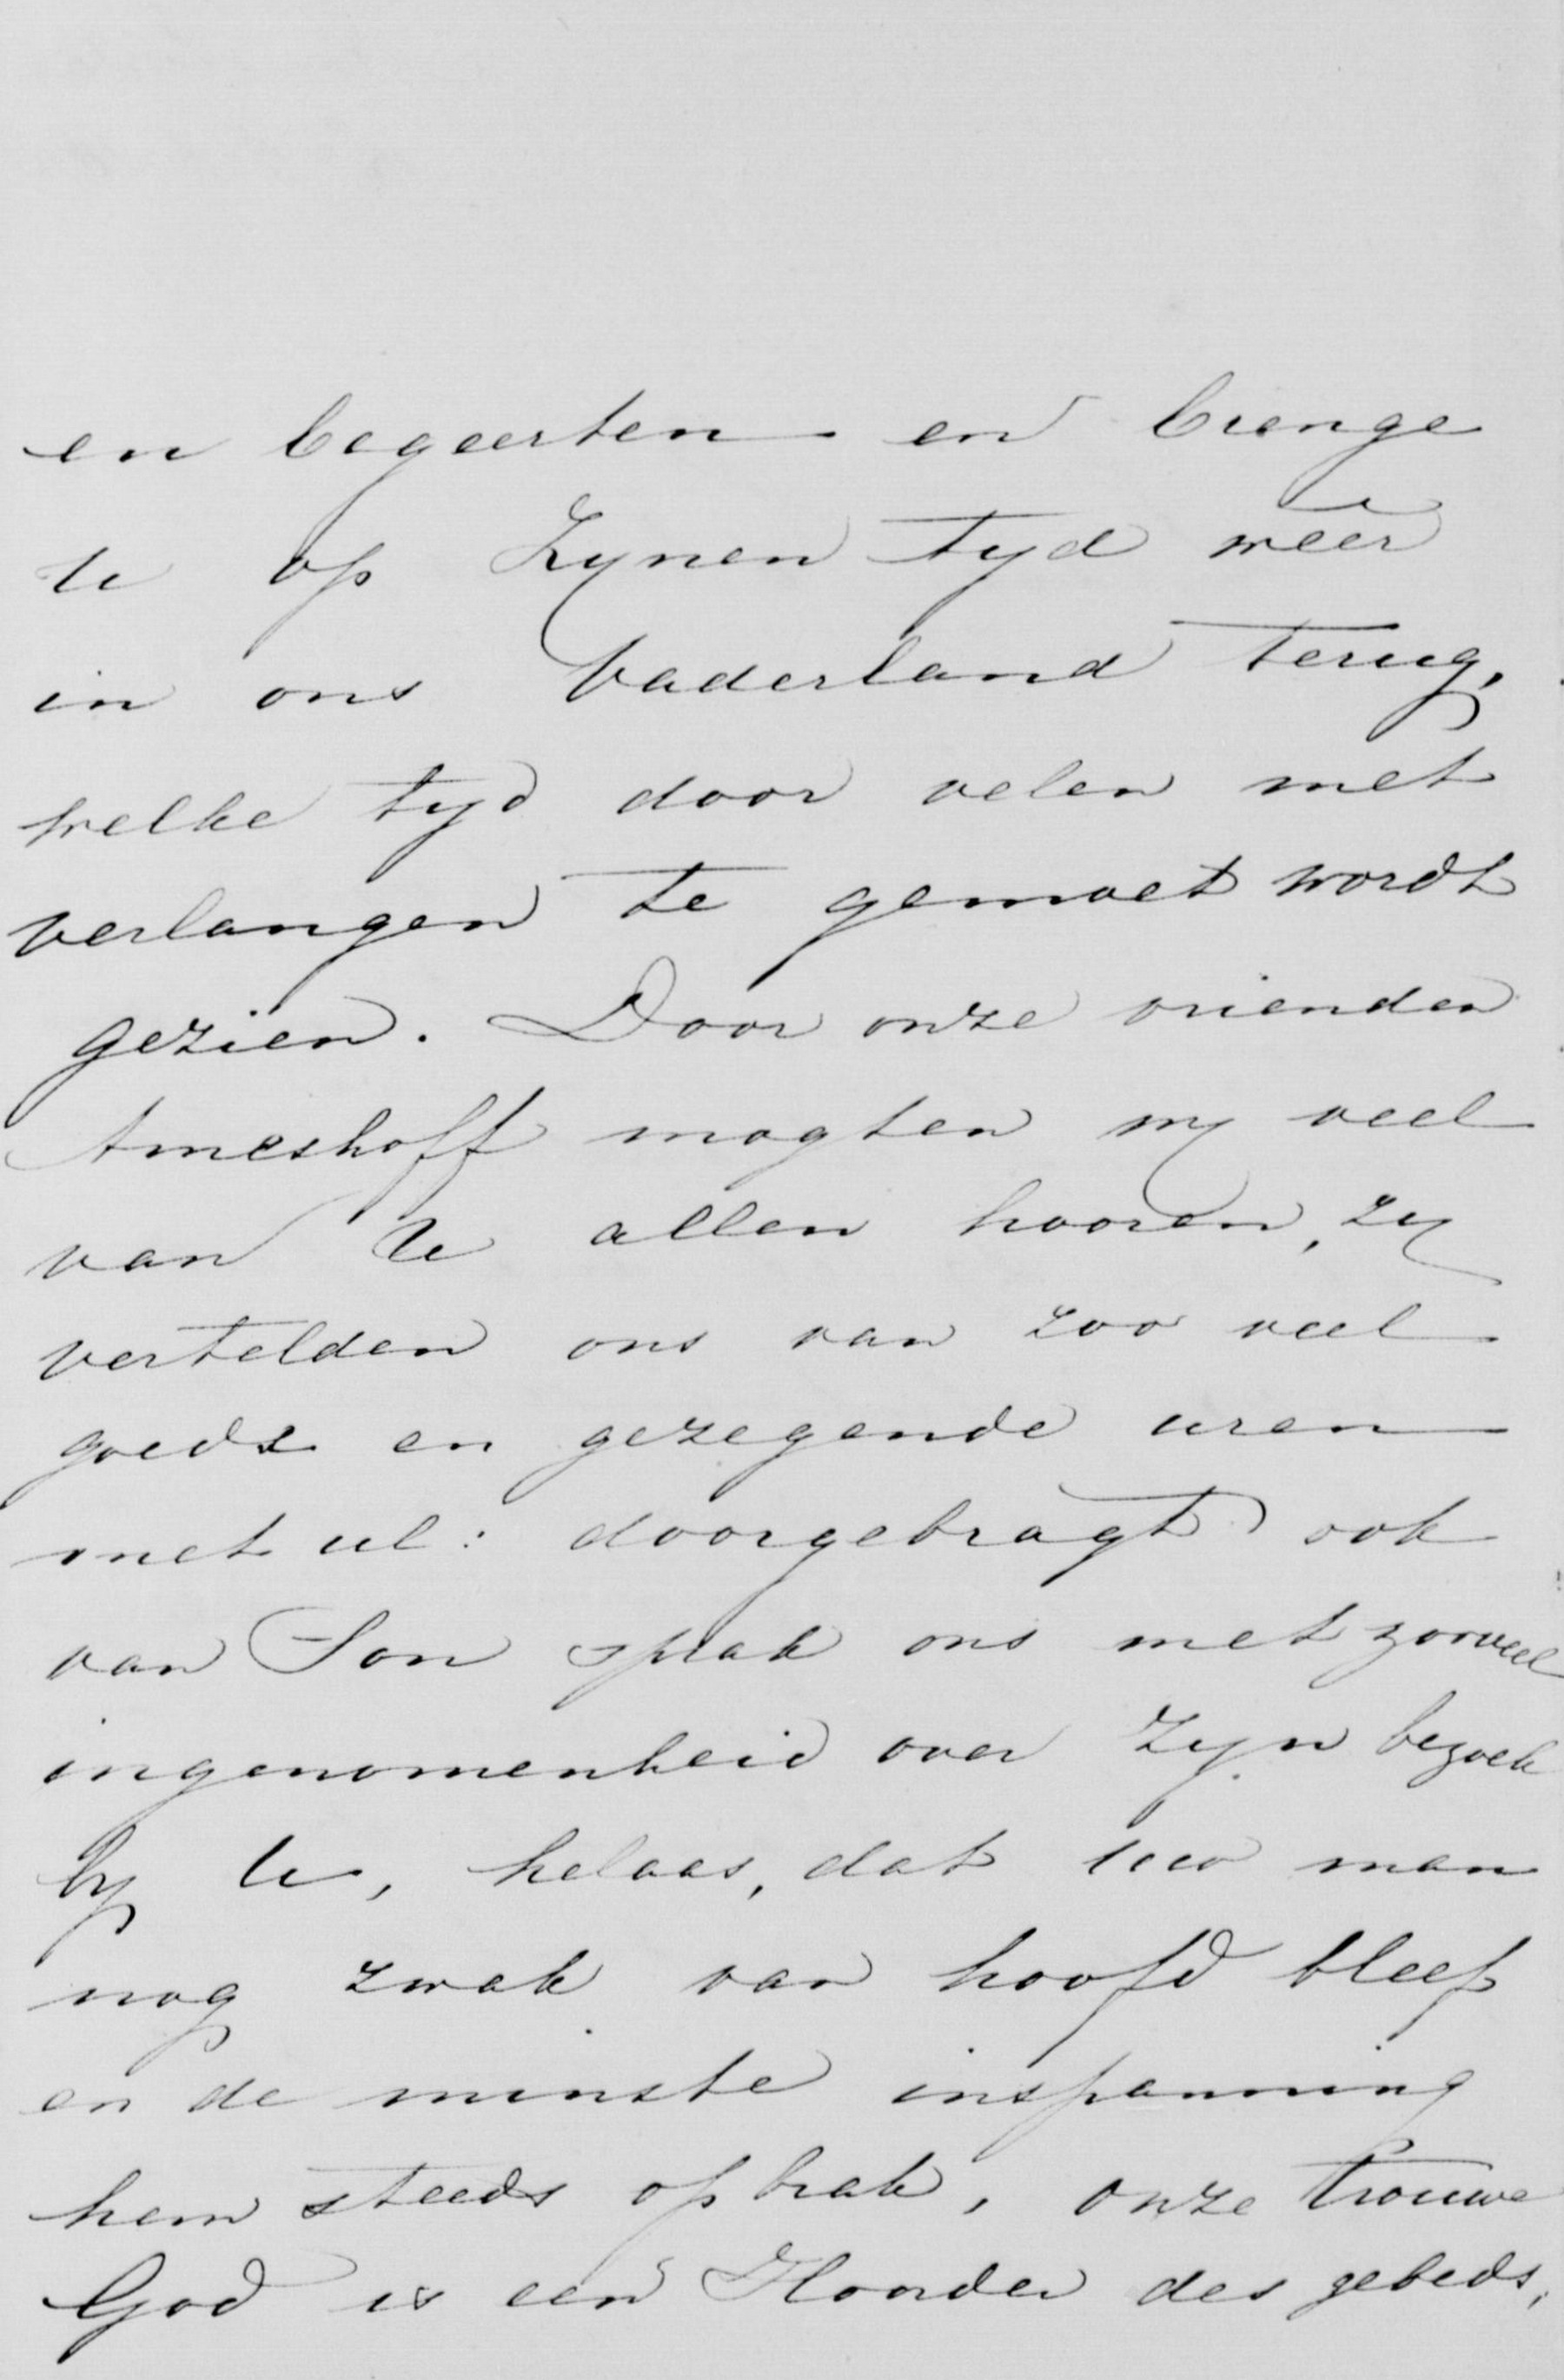 en begeerten en brenge
U op Zynen tyd weêr
in ons Vaderland terug,
welke tyd door velen met
verlangen te gemoet wordt
gezien. Door onze vrienden
Ameshoff mogten wy veel
van U allen hooren, zy
vertelden ons van zoo veel
goeds en gezegende uren
met ul: doorgebragt ook
van Son sprak ons met zooveel
ingenomenheid over zyn bezoek
by U, helaas, dat uw man
nog zwak van hoofd bleef
en de minste inspanning
hem steeds opbrak, onze trouwe
God is een Hoorder des gebeds,